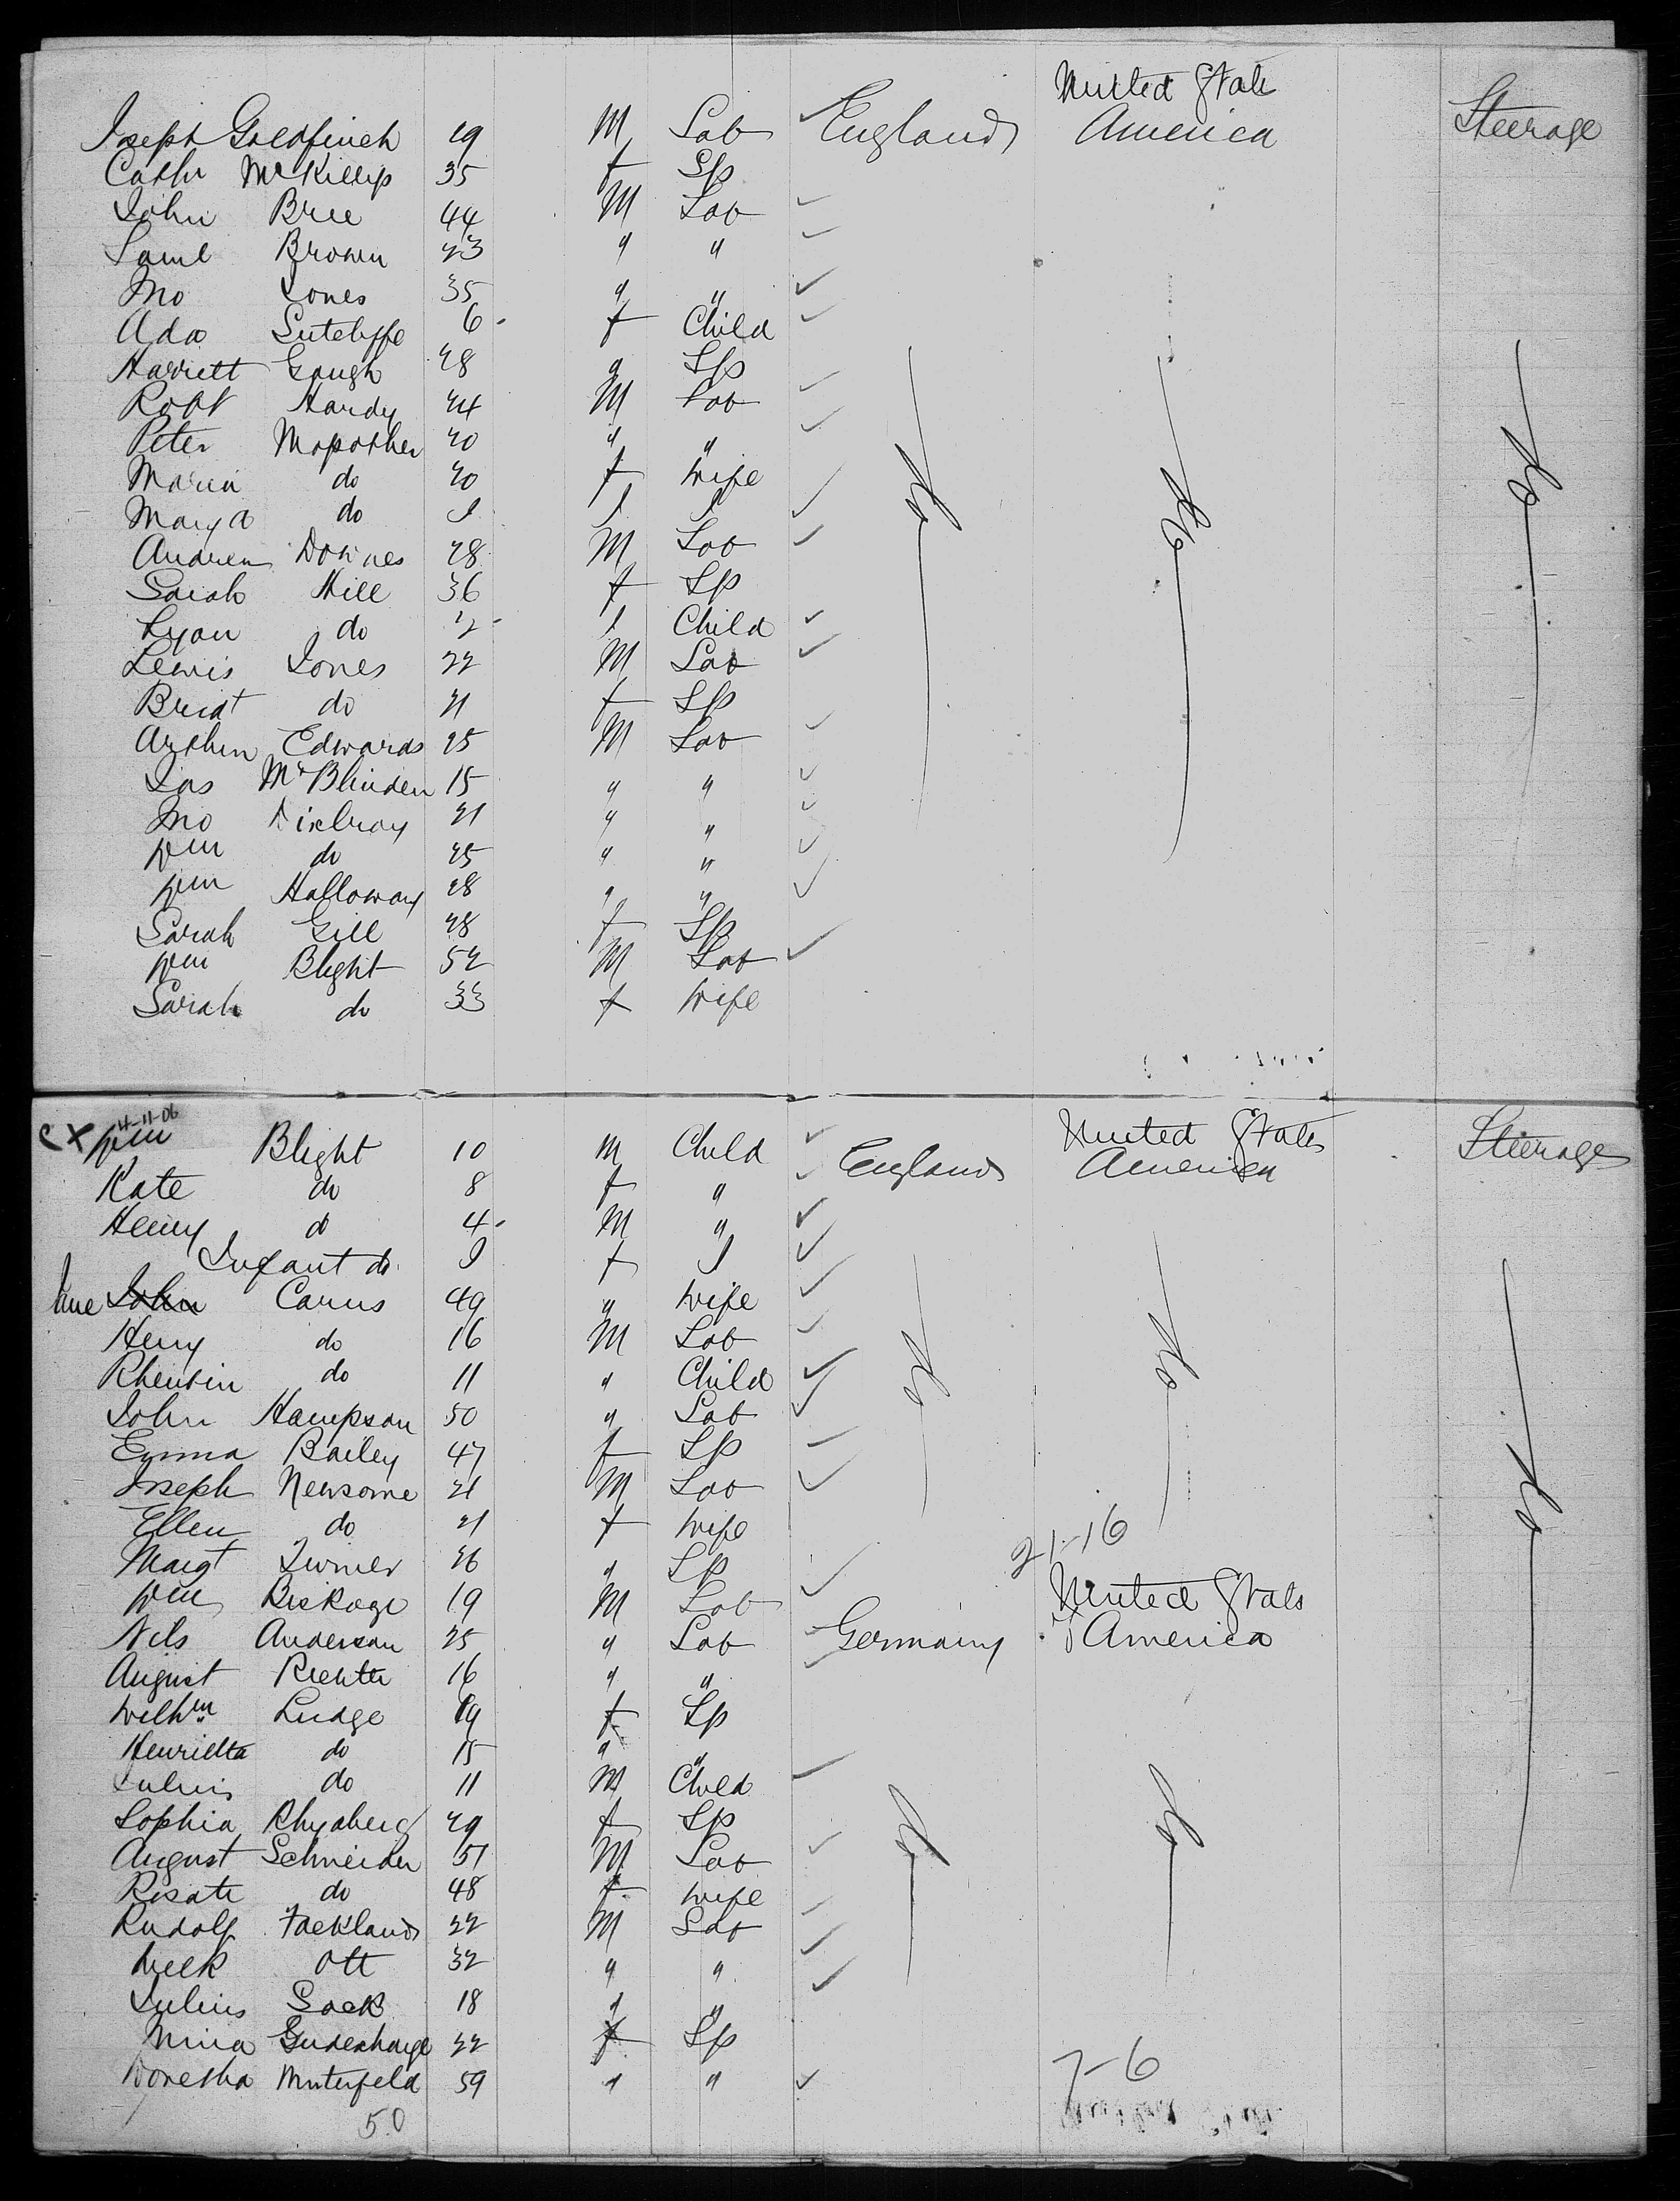 United State
Joseph Goldfinch 29 M Lab England America Steerage
Cathr McKillip 35 f Sp
John Brie 44 M Lab
Saml Brown 23 " "
Jno Jones 35 " "
Ada Sutcliffe 6 f Child
Harriett Gough 28 " Sp
Robt Hardy 24 M Lab
Peter Mapother 20 " "
Maria do 20 f Wife
Mary A do I I I
Andrew Downes 28 M Lab
Sarah Hill 36 f Sp
Ryan do 2 I Child
Lewis Jones 22 M Lab
Bridt do 21 f Sp
Arthur Edwards 25 M Lab
Jas McBlinden 15 " "
Jno 21 " "
Wm do 25 " "
Wm Halloway 28 " "
Sarah Gill 28 f Sp
Wm Blight 52 M Lab
Sarah do 33 f Wife
Do Do Do
CX 4-11-06
United States
Wm Blight 10 M Child England America Steerage
Kate do 8 f "
Henry do 4 M "
Infant do I f I
Jane John Carus 49 " Wife
Henry do 16 M Lab
Rheubin do 11 " Child
John Hampson 50 " Lab
Emma Bailey 47 f Sp
Joseph Newsome 21 M Lab
Ellen do 21 f Wife
21-16
Margt Turner 26 " Sp
Wm 19 M Lab United Stats
Nils Anderson 25 " Lab Germany of America
August Richter 16 " "
Wilhm Ludge 19 f Sp
Henrietta do 15 " "
Julius do 11 M Child
Sophia 29 f Sp
August Schneider 51 M Lab
Rosate do 48 f Wife
Rudolf Fackland 22 M Lab
Ott 32 " "
Julius Sack 18 " "
Mina 22 f Sp
7-6
Doretha Minterfeld 59 " "
Do Do Do
50